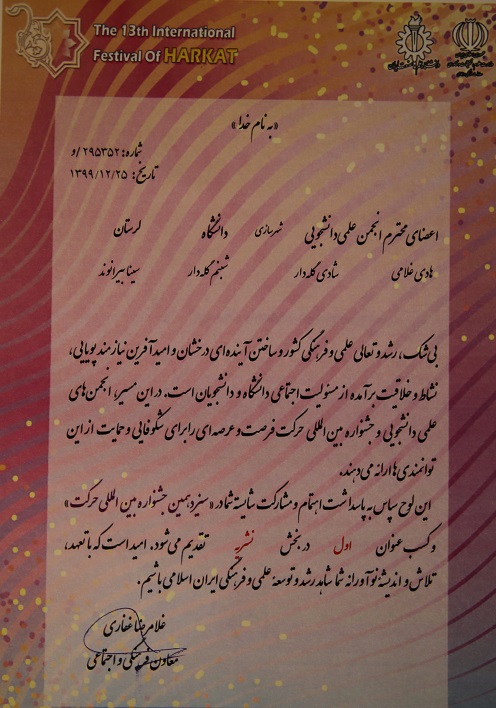 The 13th International
Festival Of HARKAT
«به نام خدا»
شماره: ۲۹۵۳۵۲/و
تاریخ: ۱۳۹۹/۱۲/۲۵
اعضای محترم انجمن علمی دانشجویی شهرسازی دانشگاه لرستان
هادی غلامی شادی گله‌دار شبنم گله‌دار سینا بیرانوند
بی‌شک، رشد و تعالی علمی و فرهنگی کشور و ساختن آینده‌ای درخشان و امیدآفرین نیازمند پویایی،
نشاط و خلاقیت برآمده از مسئولیت اجتماعی دانشگاه و دانشجویان است. در این مسیر، انجمن‌های
علمی دانشجویی و جشنواره بین‌المللی حرکت فرصت و عرصه‌ای را برای شکوفایی و حمایت از این
توانمندی‌ها ارائه می‌دهند.
این لوح سپاس به پاسداشت اهتمام و مشارکت شایسته شما در «سیزدهمین جشنواره بین‌المللی حرکت»
و کسب عنوان اول در بخش نشریه تقدیم می‌شود. امید است که با تعهد،
تلاش و اندیشهٔ نوآورانه شما شاهد رشد و توسعهٔ علمی و فرهنگی ایران اسلامی باشیم.
غلامرضا غفاری
معاون فرهنگی و اجتماعی